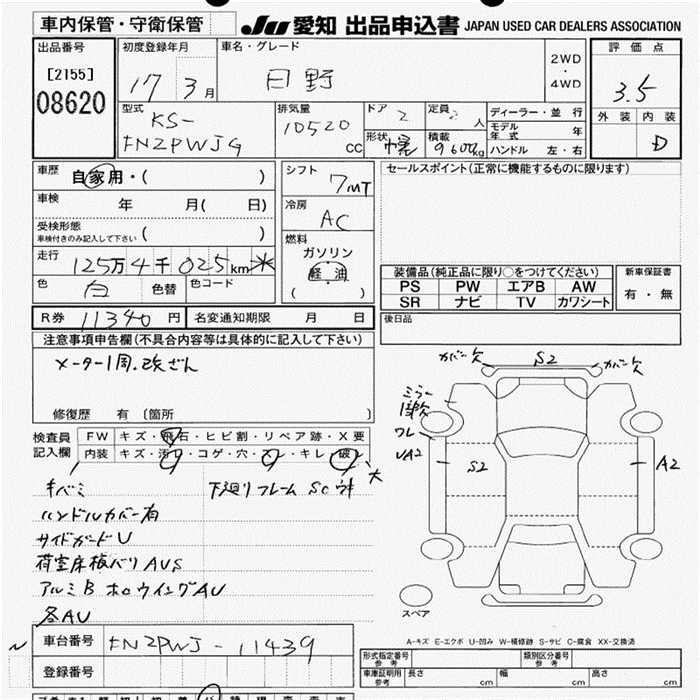 車内保管・守衛保管
JU 愛知 出品申込書 JAPAN USED CAR DEALERS ASSOCIATION
出品番号
[2155]
08620
初度登録年月
17 3月
車名・グレード
日野
2WD
・
4WD
評価点
3.5
外装 内装
D
型式
KS-
FN2PWJG
排気量
10520
cc
ドア 2
定員 2 人
形状 幌
積載 9600kg
ディーラー・並行
モデル年式 年
ハンドル 左・右
車歴
自家用・( )
車検
年 月( 日)
受検形態
車検付きのみ記入して下さい ( )
走行
125万4千025km
色 白 色替 色コード
シフト
7MT
冷房
AC
燃料
ガソリン
軽・油
( )
セールスポイント(正常に機能するものに限ります)
装備品(純正品に限り○をつけてください)
PS PW エアB AW
SR ナビ TV カワシート
新車保証書
有・無
R券 11340 円 名変通知期限 月 日
後日品
注意事項申告欄(不具合内容等は具体的に記入して下さい)
メーター1周.改ざん
修復歴 有 (箇所 )
検査員
記入欄
FW キズ・飛石・ヒビ割・リペア跡・X要
内装 キズ・汚れ・コゲ・穴・スレ・キレ・破れ
大
キバミ
下廻りフレームSC
ハンドルカバー有
サイドガードU
荷室床板バリAUS
アルミB ホロウイングAU
各AU
カバー欠
S2
カバー欠
ミラー
ワレ
UA2
S2
A2
スペア
A-キズ E-エクボ U-凹み W-補修跡 S-サビ C-腐食 XX-交換済
車台番号 FN2PWJ-11439
登録番号
形式指定番号
参考
類別区分番号
参考
車庫証明用
参考
長さ cm 幅 cm 高さ cm